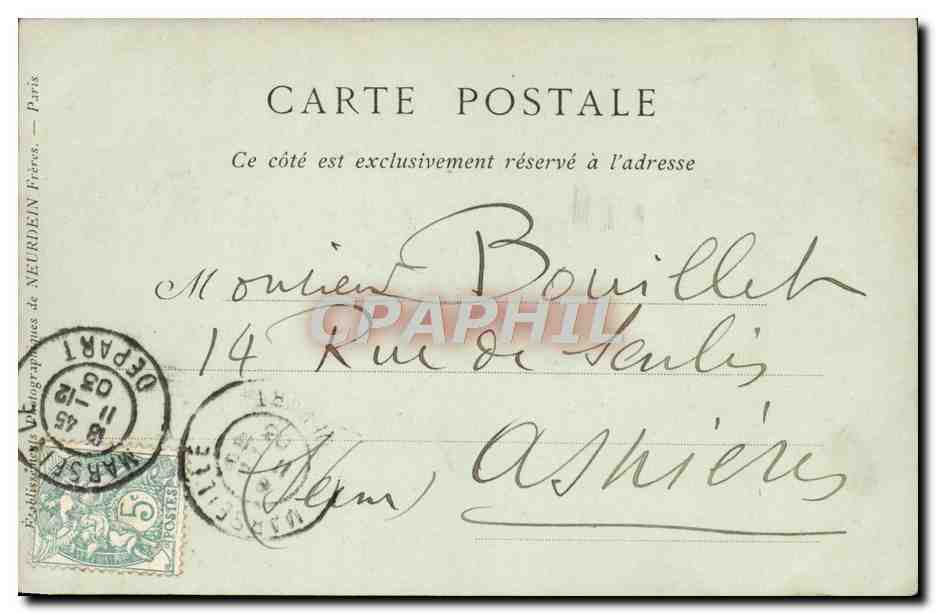 CARTE POSTALE
Ce côté est exclusivement réservé à l'adresse
Monsieur Bouillet
14 Rue de Senlis
Asnières
(Seine)
CPAPHIL
Établissements photographiques de NEURDEIN Frères. — Paris
MARSEILLE
18 45
11 -12
03
DEPART
MARSEILLE
5c
POSTES